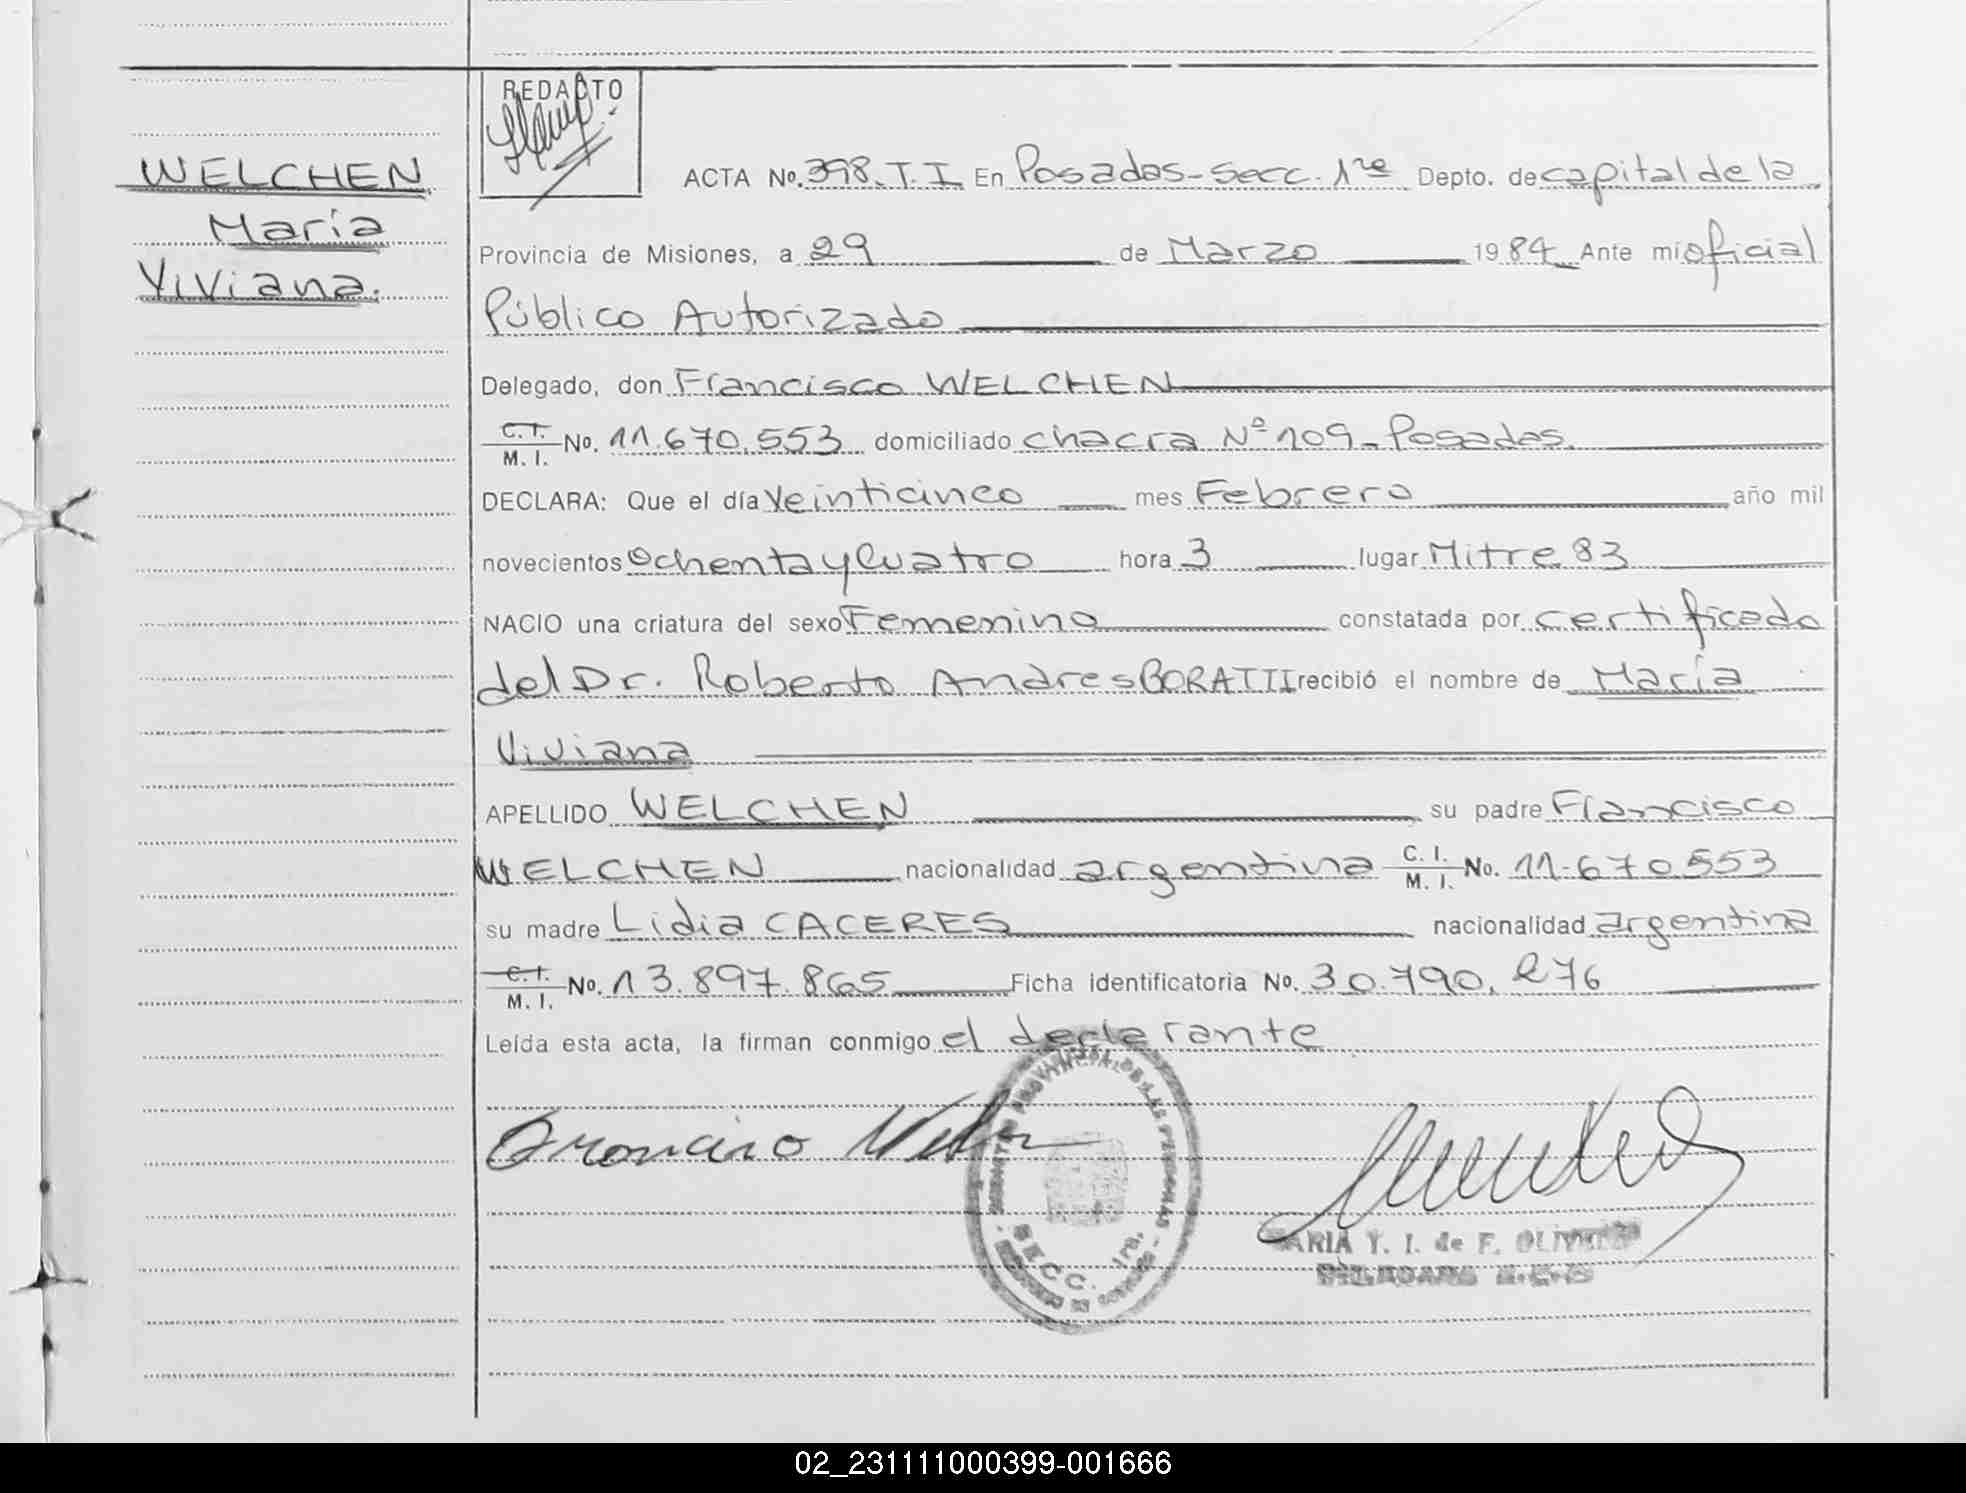 REDACTO
WELCHEN
María
Viviana.
ACTA No. 398. T. I. En Posadas - Secc. 1re Depto. de capital de la
Provincia de Misiones, a 29 de Marzo 1984 Ante mí oficial
Público Autorizado
Delegado, don Francisco WELCHEN
C. I. M. I. No. 11.670.553 domiciliado chacra Nº 109 - Posadas.
DECLARA: Que el día Veinticinco mes Febrero año mil
novecientos Ochenta y Cuatro hora 3 lugar Mitre 83
NACIO una criatura del sexo Femenino constatada por certificado
del Dr. Roberto Andres BORATTI recibió el nombre de María
Viviana
APELLIDO WELCHEN su padre Francisco
WELCHEN nacionalidad argentina C. I. M. I. No. 11.670.553
su madre Lidia CACERES nacionalidad argentina
C. I. M. I. No. 13.897.865 Ficha identificatoria No. 30.790.276
Leída esta acta, la firman conmigo el declarante
PROVINCIAL DE LAS PERSONAS
SECC. 1ra.
MARIA Y. I. de F. OLIVEIRA
02_231111000399-001666